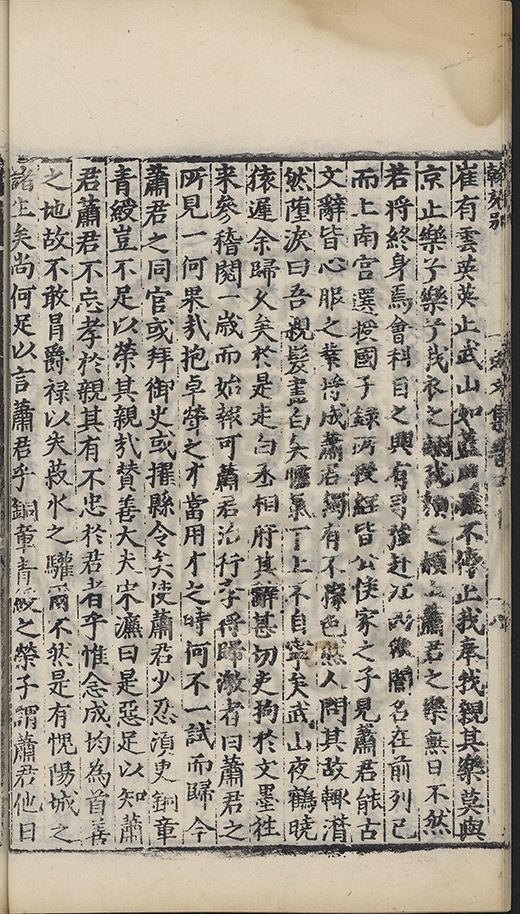 翰苑别
崔有雲英英止武山如藍不停止我奉我親其樂莫與
京止樂子樂子我衣之我之蕭君之樂無日不然
若將終身焉會科目之興有司強赴江西闈名在前列已
而上南宮選授國子錄所授經皆公侯家之子見蕭君能古
文辭皆心服之業將成蕭君獨有不懌色人問其故輙潸
然墮淚曰吾親髮盡白矣上不自寧矣武山夜鶴曉
猿遲余歸久矣於是走白丞相府其辭甚切吏拘於文墨往
来參稽閱一歳而始報可蕭君治行李得歸激者曰蕭君之
所見一何果㢤抱卓犖之才當用才之時何不一試而歸今
蕭君之同官或拜御史或擢縣令矣使蕭君少忍湏臾銅章
青綬豈不足以榮其親㢤賛善大夫宋濂曰是惡足以知蕭
君蕭君不忘孝於親其有不忠於君者乎惟念成均為首善
之地故不敢冒爵禄以失菽水之驩爾不然是有愧陽城之
諸生矣尚何足以言蕭君乎銅章青綬之榮子謂蕭君他日